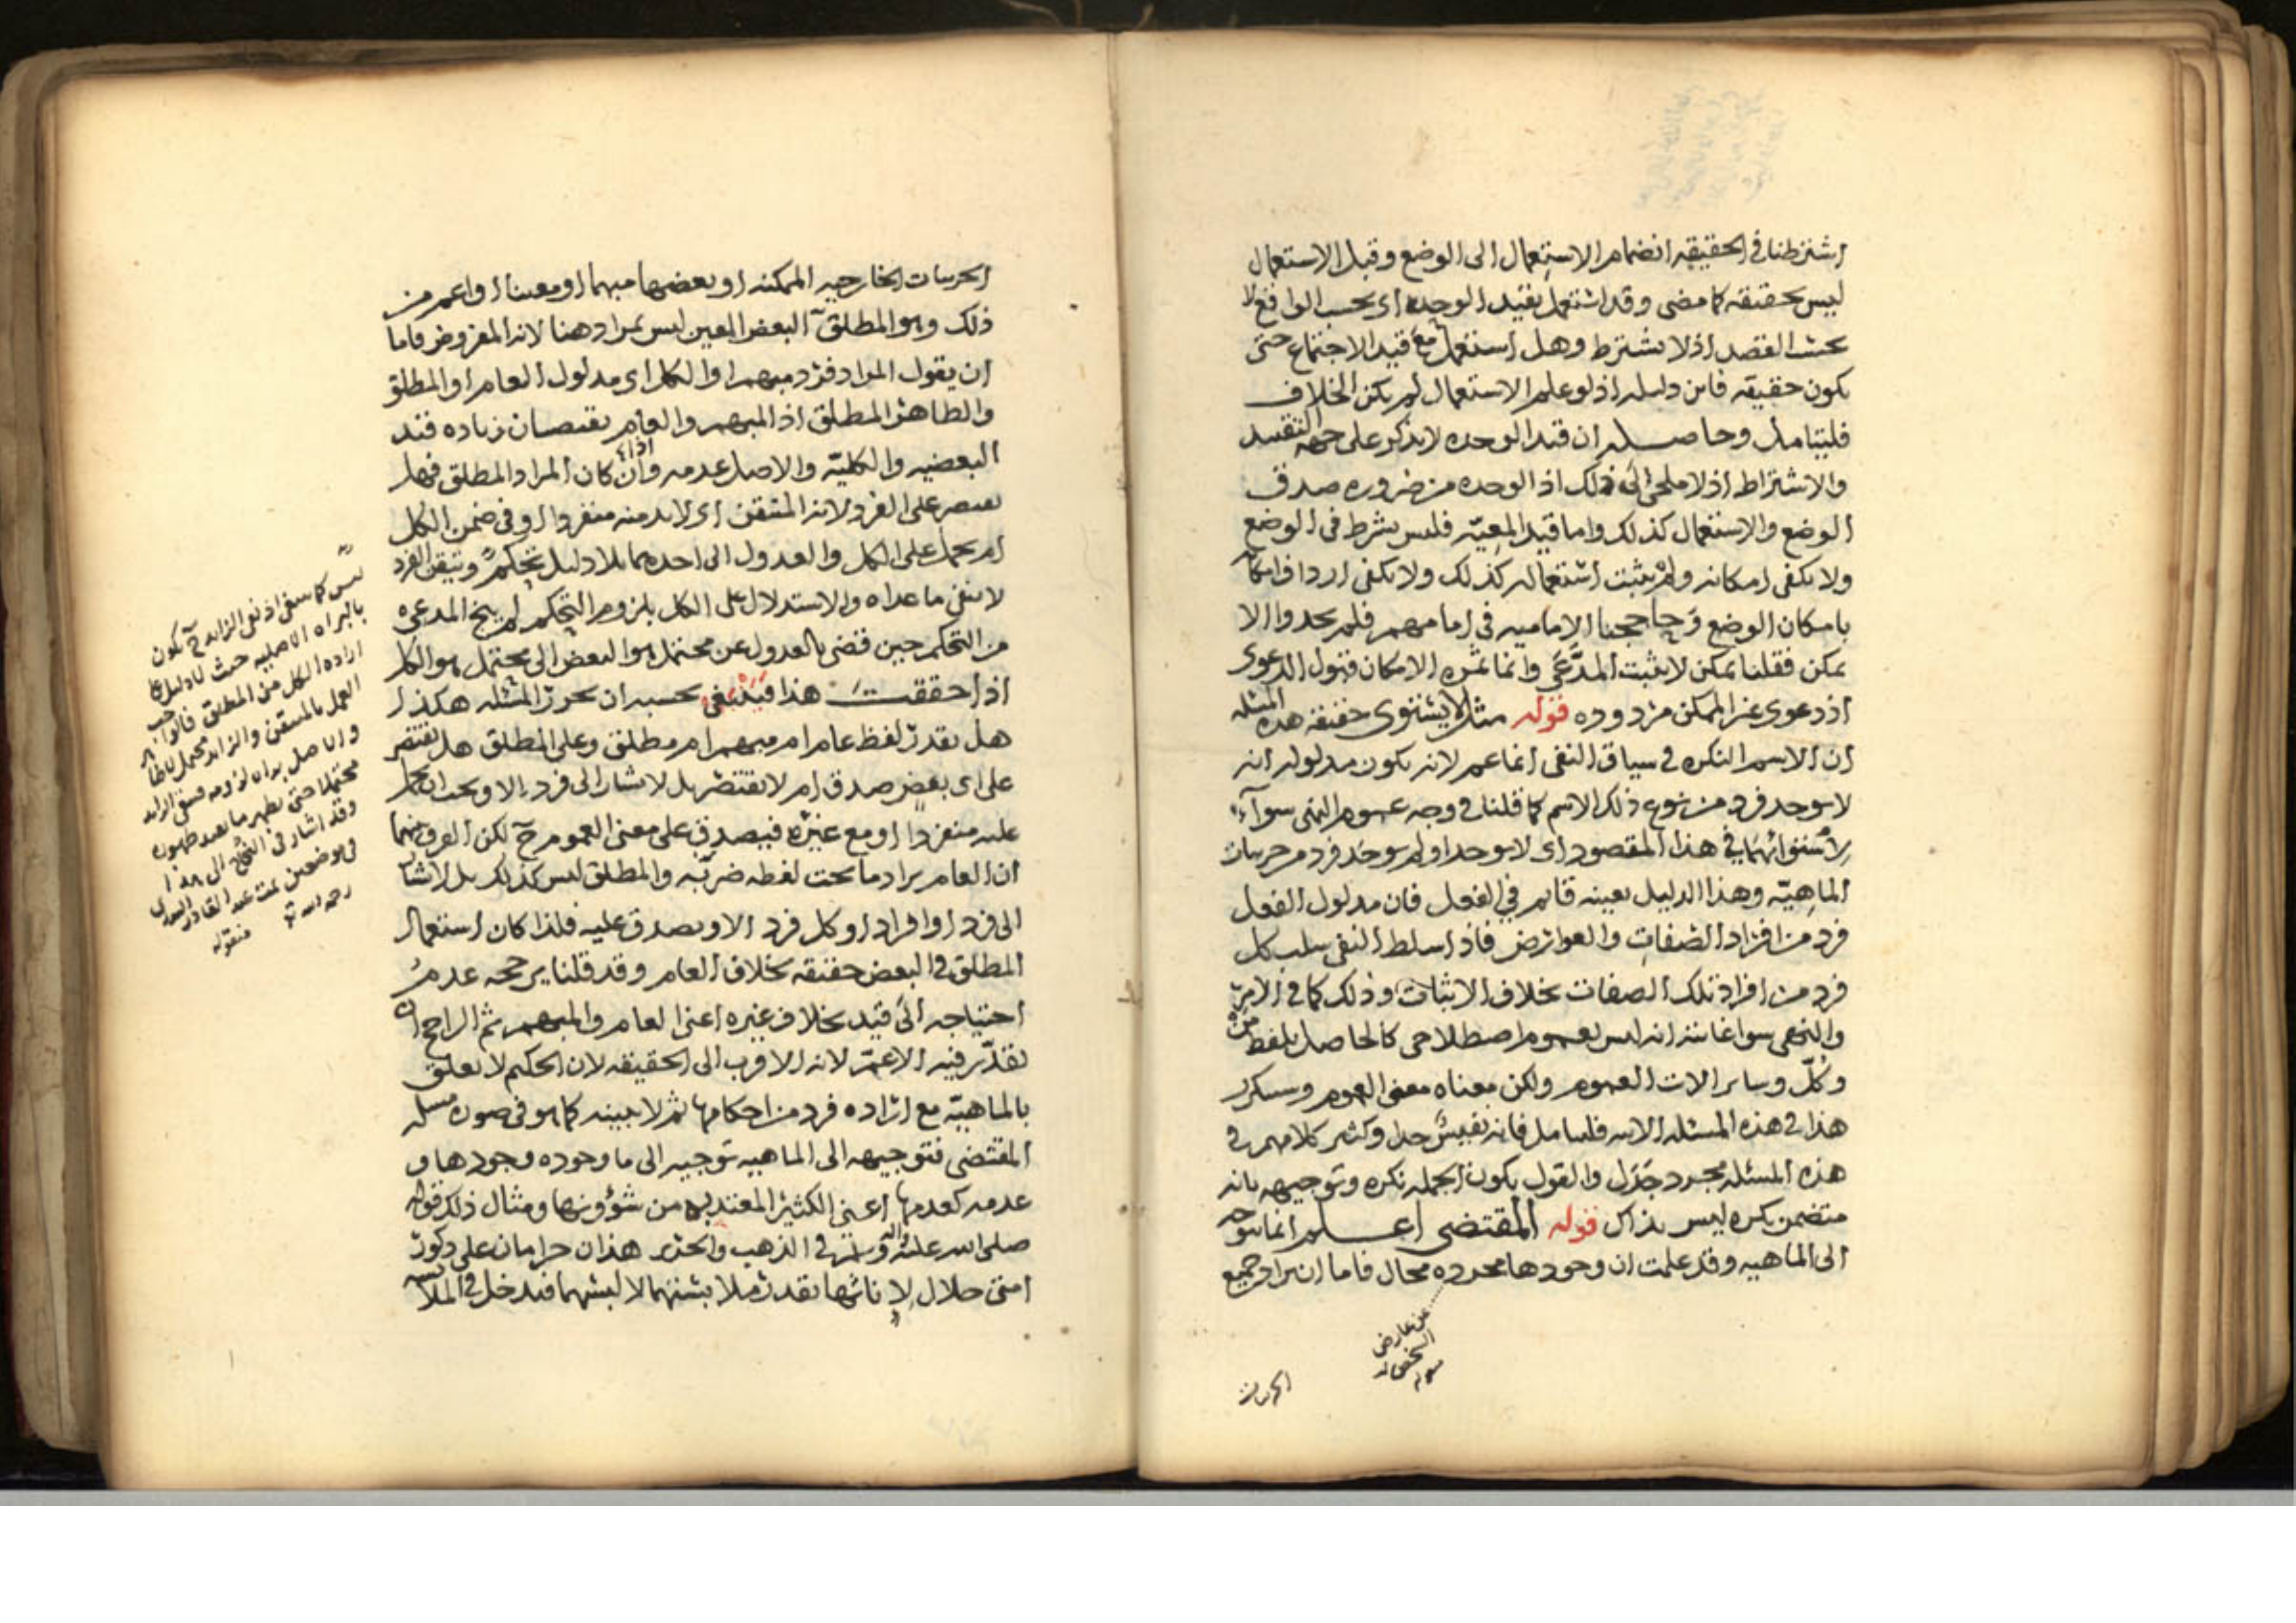 اشترطنا في الحقيقه انضمام الاستعمال الى الوضع وقبل الاستعمال
ليس بحقيقه كما مضى وقد استعمل بقيد الوحده اى بحسب الواقع لا
بحسب القصد اذ لا يشترط وهل استعمل مع قيد الاجتماع حتى
يكون حقيقه فاين دليله اذ لو علم الاستعمال لم يكن الخلاف
فليتامل وحاصله ان قيد الوحده لا يذكر على جهه التقييد
والاشتراط اذ لا ملجئ الى ذلك اذ الوحده من ضروره صدق
الوضع والاستعمال كذلك واما قيد المعيّه فليس بشرط في الوضع
ولا يكفى امكانه ولم يثبت استعماله كذلك ولا يكفى
بامكان الوضع وحاججنا الاماميه في امامهم فلم يجدوا الا
يمكن فقلنا يمكن لا يثبت المدَّعَى وانما ثمره الامكان قبول الدعوى
اذ دعوى غير الممكن مردوده قوله مثل لا يستوى حقيقه هذه المسئله
ان الاسم النكره في سياق النفى انما عم لانه يكون مدلوله انه
لا يوجد فرد من نوع ذلك الاسم كما قلنا في وجه عموم النهى سوآء
لاستوائهما في هذا المقصود اى لا يوجد او لم يوجد فرد من جزئيات
الماهيّه وهذا الدليل بعينه قايم في الفعل فان مدلول الفعل
فرد من افراد الصفات والعوارض فاذا سلط النفى سلب كل
فرد من افراد تلك الصفات بخلاف الاثبات وذلك كما في الامر
والنهى سوا غايته انه ليس بعموم اصطلاحى كالحاصل بلفظ من
وكلّ وساير الات العموم ولكن معناه معنى العموم وسيكرر
هذا في هذه المسئله الاتيه فليتامل فانه نفيس جدا وكثير كلامهم في
هذه المسئله مجرد جَدَل والقول بكون الجمله نكره وتوجيهه بانه
متضمن نكره ليس بذاك قوله المقتضى اعلم انما يتوجه
الى الماهيه وقد علمت ان وجودها مجرده محال فاما ان يراد جميع
عن عارض
الجزئيات
الجزئيات الخارجيه الممكنه او بعضها مبهما او معينا او اعم من
ذلك وهو المطلق البعض المعين ليس بمراد هنا لانه المفروض فاما
ان يقول المراد فرد مبهم او الكل اى مدلول العام او المطلق
والظاهر المطلق اذ المبهم والعام يقتضيان زياده قيد
البعضيه والكليّه والاصل عدمه وان كان المراد المطلق فهل
يقتصر على الفرد لانه المتيقن اى لا بد منه منفردا او في ضمن الكل
ام يحمل على الكل والعدول الى احدهما بلا دليل تحكم وتيقن الفرد
لا ينفى ما عداه والاستدلال على الكل بلزوم التحكم لم ينج المدعى
من التحكم حين قضى بالعدول عن محتمل هو البعض الى محتمل هو الكل
اذا حققت هذا فينبغى بحسبه ان تحرر المسئله هكذا
هل يقدر لفظ عام ام مبهم ام مطلق وعلى المطلق هل يقتصر
على اى بعض صدق ام لا يقتصر بل لا يشار الى فرد الا ويجب ان يحمل
عليه منفردا او مع غيره فيصدق على معنى العموم ح لكن الفرق بينهما
ان العام يراد ما تحت لفظه ضربه والمطلق ليس كذلك بل لا يشار
الى فرد او افراد او كل فرد الا ويصدق عليه فلذا كان استعمال
المطلق في البعض حقيقه بخلاف العام وقد قلنا يرجحه عدم
احتياجه الى قيد بخلاف غيره اعنى العام والمبهم ثم الراجح ان
يقدّر فيه الاعمّ لانه الاقرب الى الحقيقه لان الحكيم لا يعلق
بالماهيّه مع اراده فرد من احكامها ثم لا يبينه كما هو في صوره مسئله
المقتضى فتوجيهه الى الماهيه توجيه الى ما وجوده وجودها و
عدمه كعدمها اعنى الكثير المعتد به من شؤونها ومثال ذلك قوله
صلى الله عليه واله وسلم في الذهب والحرير هذان حرامان على ذكور
امتى حلال لاناثها يقدر ملابستهما لا لبسهما فيدخل في الملابسه
ليس كما ينبغى اذ نفى الزايد ح يكون
بالبراه الاصليه حيث لا دليل على
اراده الكل من المطلق فالواجب
العمل بالمتيقن والزايد محتمل
والاصل براه لزومه فبقى الزايد
محتملا حتى يظهر ما يفيد ظهوره
وقد اشار في النجاح الى هذا
في موضعين تمت عبد القادر البدرى
رحمه الله منقوله